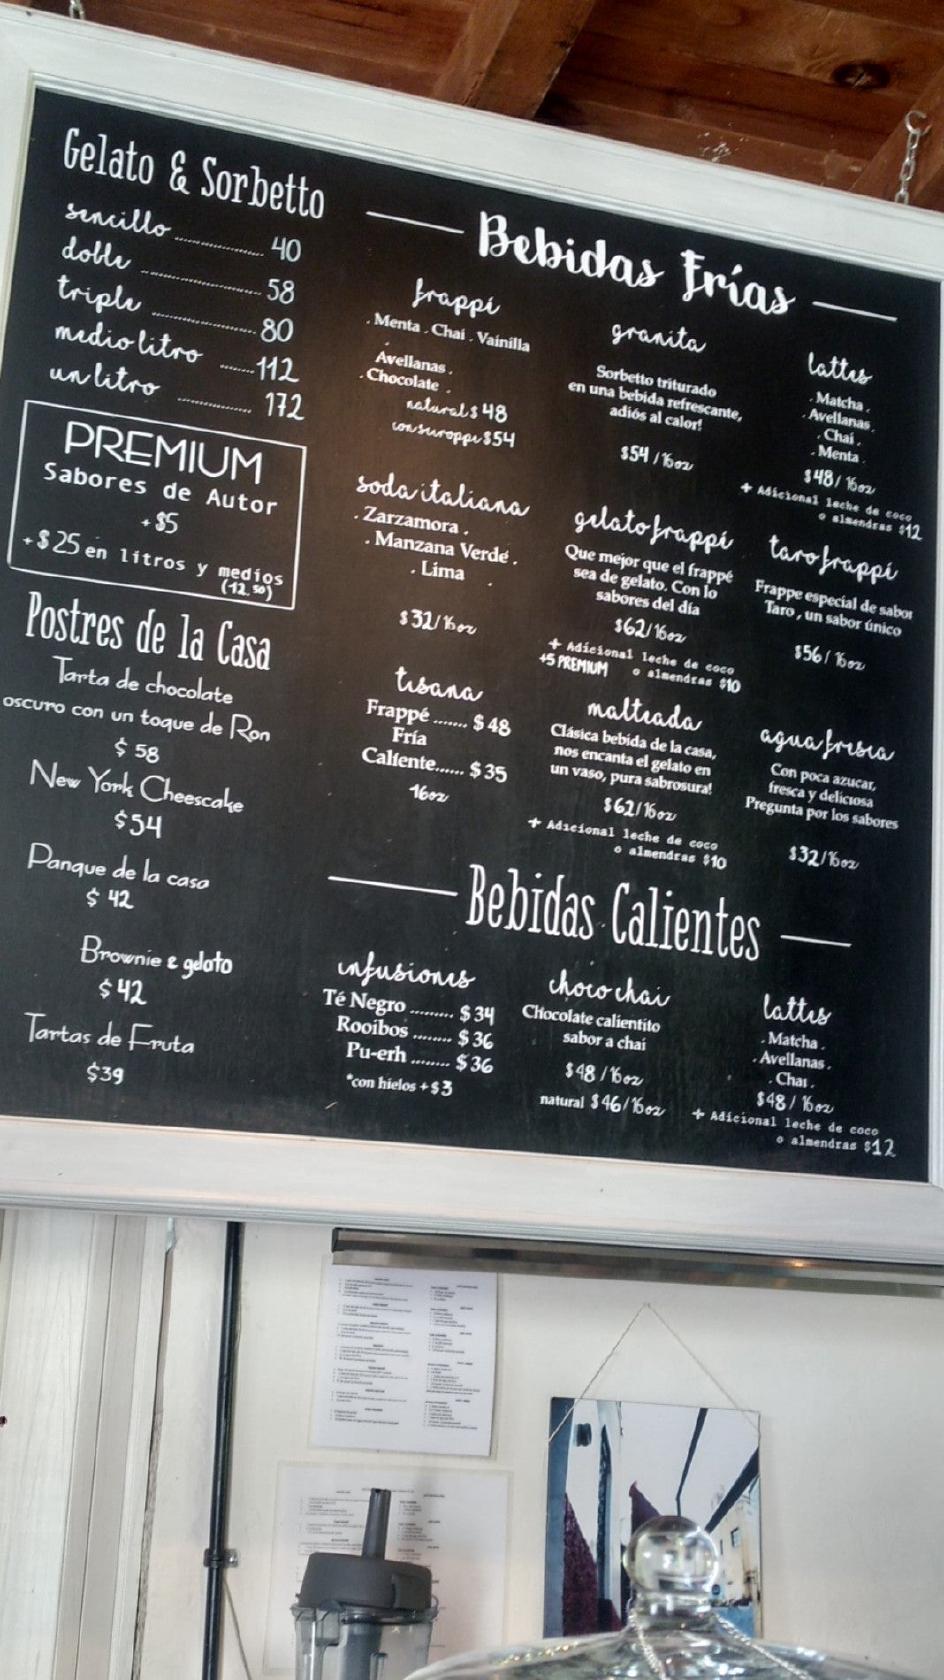 Gelato & Sorbetto
sencillo .................... 40
doble .................... 58
triple .................... 80
medio litro ........ 112
un litro ................ 172
PREMIUM
Sabores de Autor
+$5
+$25 en litros y medios
(12.50)
Postres de la Casa
Tarta de chocolate
oscuro con un toque de Ron
$ 58
New York Cheescake
$54
Panque de la casa
$ 42
Brownie & gelato
$ 42
Tartas de Fruta
$39
Bebidas Frías
frappé
. Menta . Chai . Vainilla
Avellanas .
. Chocolate .
natural $ 48
$54
soda italiana
. Zarzamora .
. Manzana Verde .
. Lima .
$32/16oz
tisana
Frappé ....... $ 48
Fría
Caliente...... $ 35
16oz
granita
Sorbetto triturado
en una bebida refrescante,
adiós al calor!
$54 /16oz
gelato frappé
Que mejor que el frappé
sea de gelato. Con lo
sabores del día
$62/16oz
+ Adicional leche de coco
+5 PREMIUM o almendras $10
malteada
Clásica bebida de la casa,
nos encanta el gelato en
un vaso, pura sabrosura!
$62/16oz
+ Adicional leche de coco
o almendras $10
lattes
. Matcha .
. Avellanas .
. Chai .
. Menta .
$48/ 16oz
+ Adicional leche de coco
o almendras $12
taro frappé
Frappe especial de sabor
Taro , un sabor único
$56/ 16oz
agua fresca
Con poca azucar,
fresca y deliciosa
Pregunta por los sabores
$32/16oz
Bebidas Calientes
infusiones
Té Negro ......... $ 34
Rooibos ......... $ 36
Pu-erh ........ $ 36
*con hielos +$ 3
choco chai
Chocolate calientito
sabor a chai
$48 /16oz
natural $ 46/16oz
lattes
. Matcha .
. Avellanas .
. Chai .
$48/ 16oz
+ Adicional leche de coco
o almendras $12